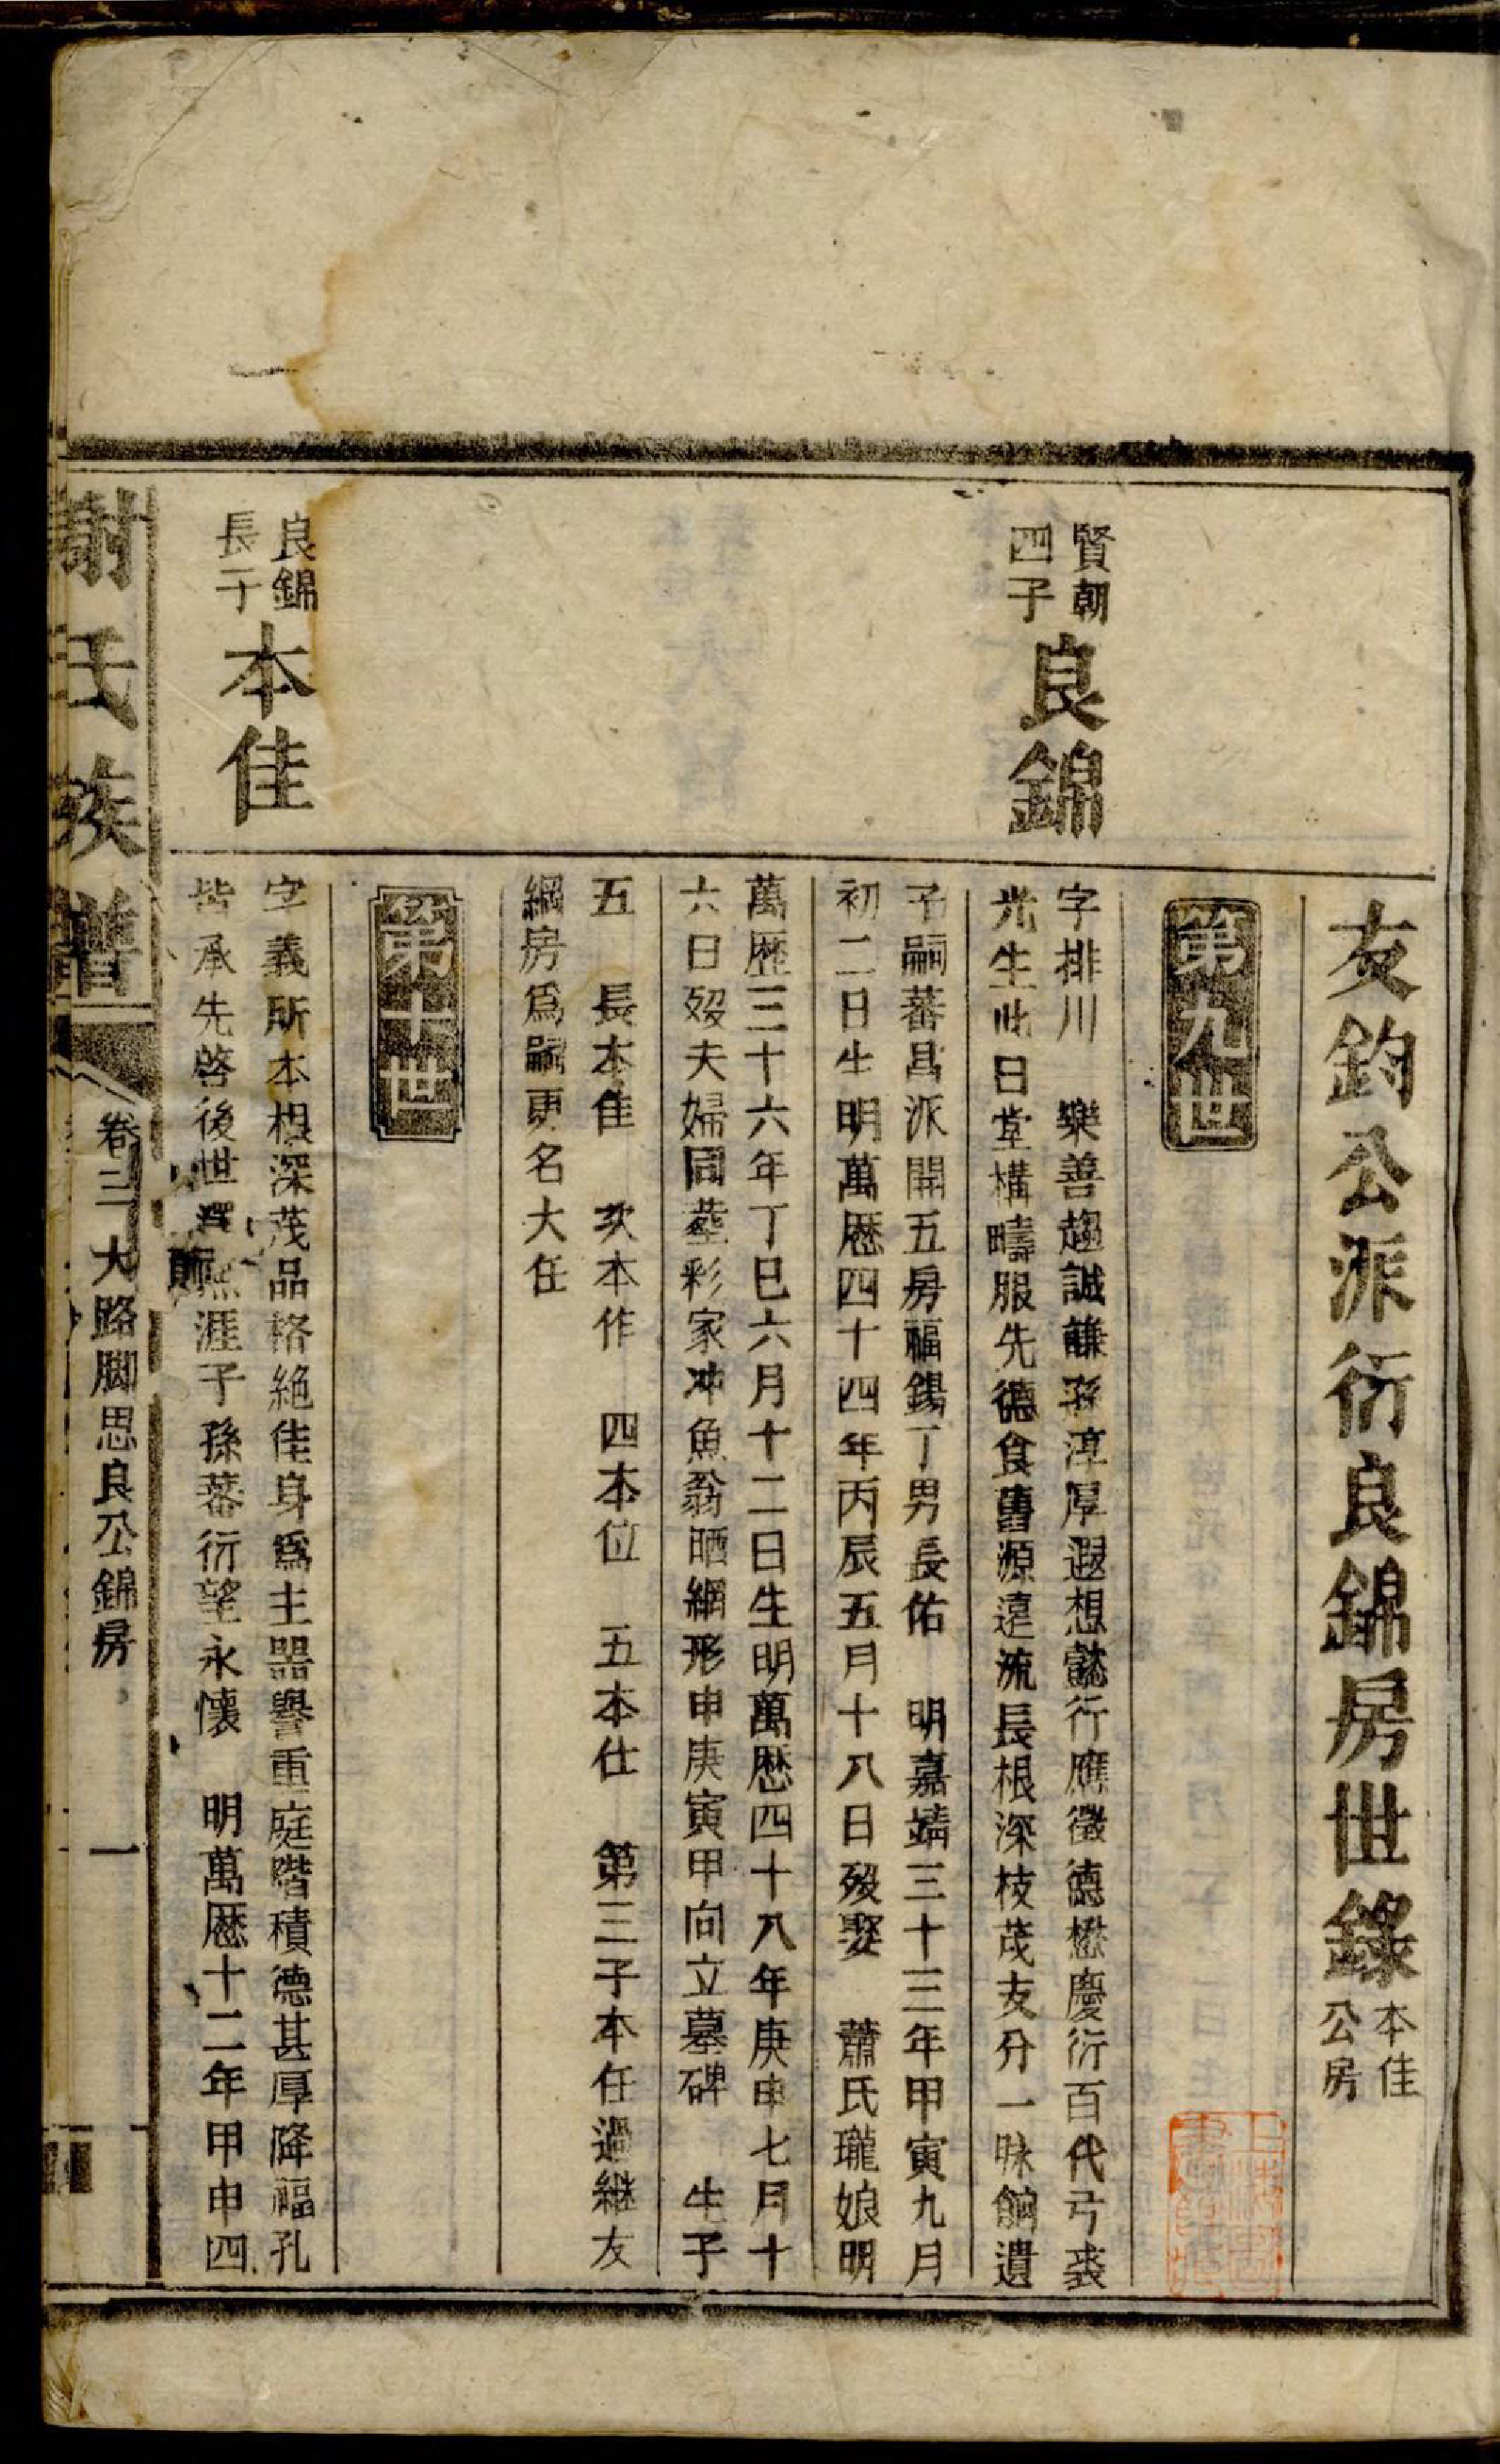 友鈞公派衍良錦房世錄
本佳
公房
第九世
賢朝
四子
良錦
字排川　樂善趨誠謙孫淳厚遐想懿行應徵德懋慶衍百代弓裘
光生此日堂構疇服先德食舊源遠流長根深枝茂支分一脉餉遺
子嗣蕃昌派開五房福錫丁男長佑　明嘉靖三十三年甲寅九月
初二日生明萬歷四十四年丙辰五月十八日殁娶　蕭氏瓏娘明
萬歷三十六年丁巳六月十二日生明萬歷四十八年庚申七月十
六日殁夫婦同塟彩家冲魚翁晒網形申庚寅甲向立墓碑　生子
五　長本佳　次本作　四本位　五本仕　第三子本任過継友
綱房爲嗣更名大任
第十世
良錦
長子
本佳
字義所本根深茂品格絶佳身爲主器譽重庭階積德甚厚降福孔
皆承先啓後世澤無涯子孫蕃衍望永懷　明萬歷十二年甲申四
謝氏族譜
卷三 大路脚思良公錦房
一